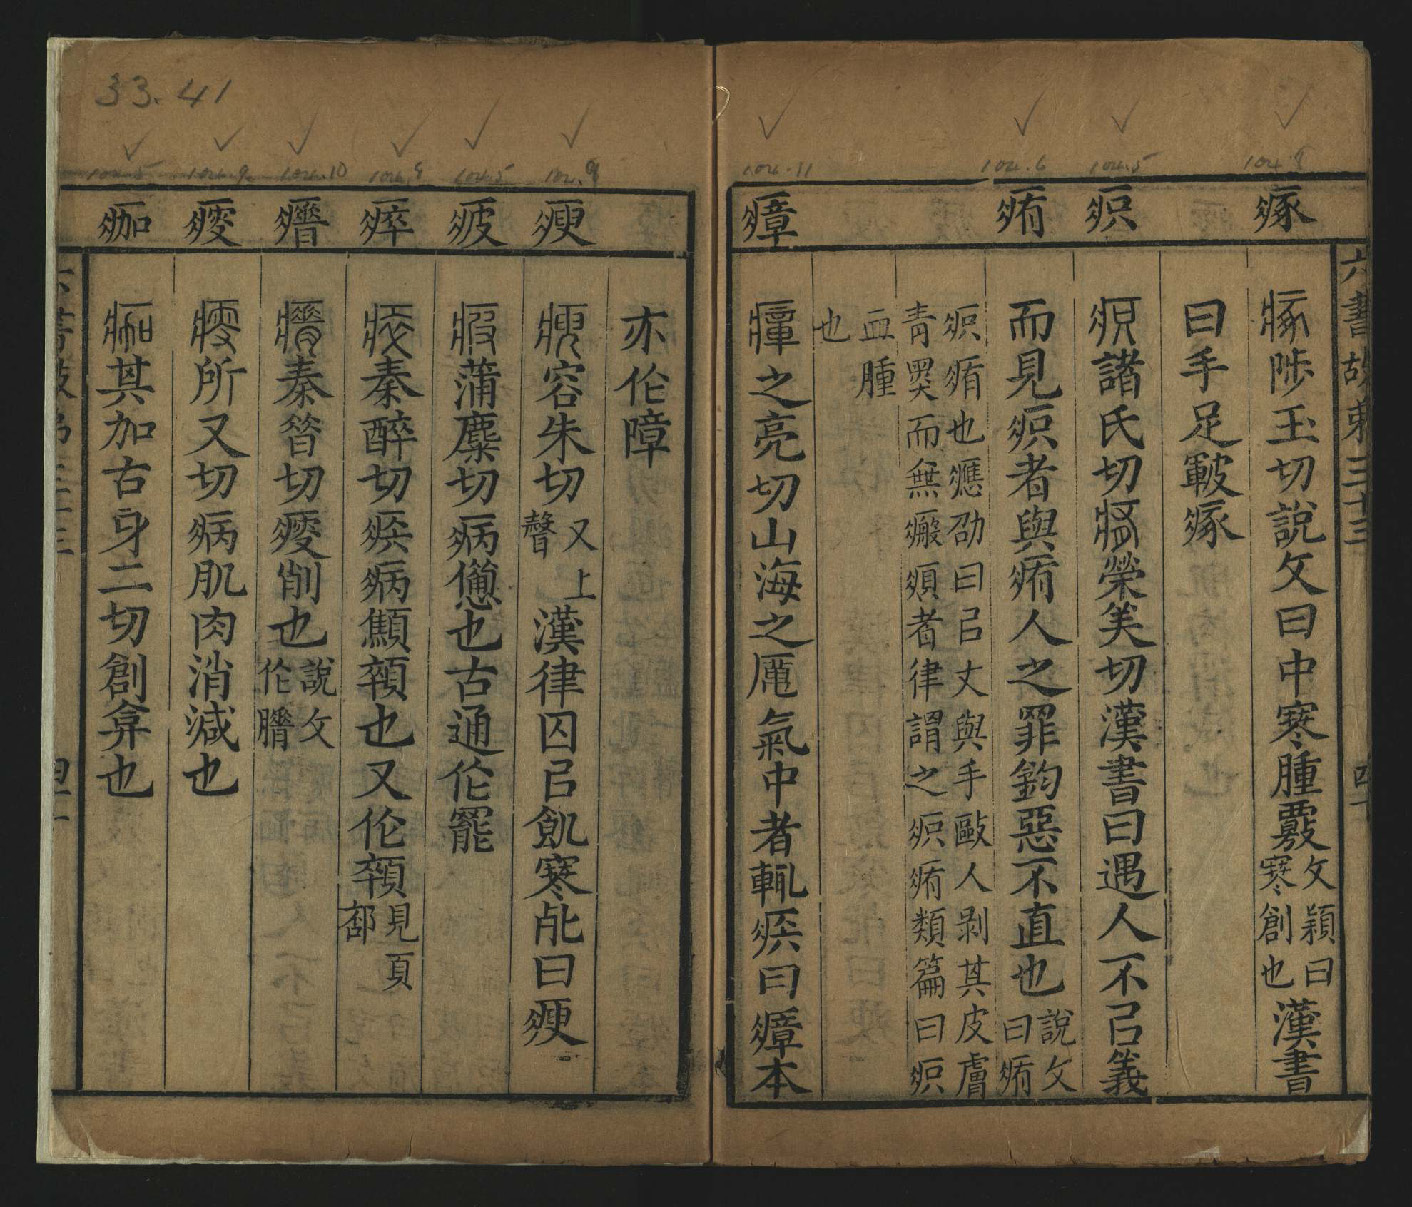 33.41
104.9
104.5
104.6
104.11
104.9
104.5
104.9
104.10
104.9
104.5
六書故弟三十三
瘃
瘃陟玉切說文曰中寒腫覈文穎曰寒創也漢書
曰手足皸瘃
疻
疻諸氏切痏榮美切漢書曰遇人不㠯義
痏
而見疻者與痏人之罪鈞惡不直也說文曰痏
疻痏也應劭曰㠯丈與手毆人剥其皮膚
青黑而無瘢頍者律謂之疻痏類篇曰疻
血腫
也
瘴
瘴之亮切山海之厲氣中者輒疾曰瘴本
亦作障
瘐
瘐容朱切又上聲漢律囚㠯飢寒死曰瘐
疲
疲蒲麋切病憊也古通作罷
瘁
瘁秦醉切疾病顦顇也又作顇見頁部
㾱秦簪切瘦削也說文作朁
瘦
瘦所又切病肌肉消減也
痂
痂其加古牙二切創弇也